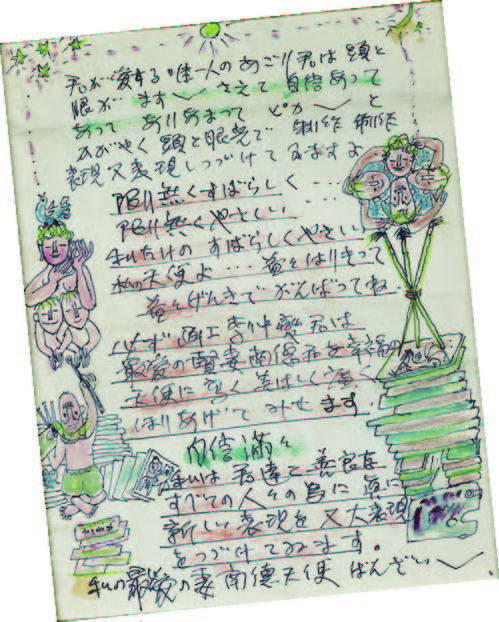 君が愛する唯一人のあごり君は頭と
眼が ます〱 さえて 自信あって
あって ありあまって ピカ〱 と
かがやく頭と眼光で 制作 制作
表現又表現しつづけてゐますよ
限り無くすばらしく ・・・
限り無くやさしい ・・・
私だけの すばらしくやさしい
私の天使よ ・・・ 益々はりきって
益々げんきで がんばってね.
必ず 画工李仲燮君は
最愛の賢妻南德君を幸福の
天使に 高く美はしく
ほりあげて みせ ます.
自信満々
私は 君達と 善良な
すべての人々の為に 真に
新しい表現を又大表現
をつづけてゐます。
私の最愛の妻 南德天使 ばんざい〱.